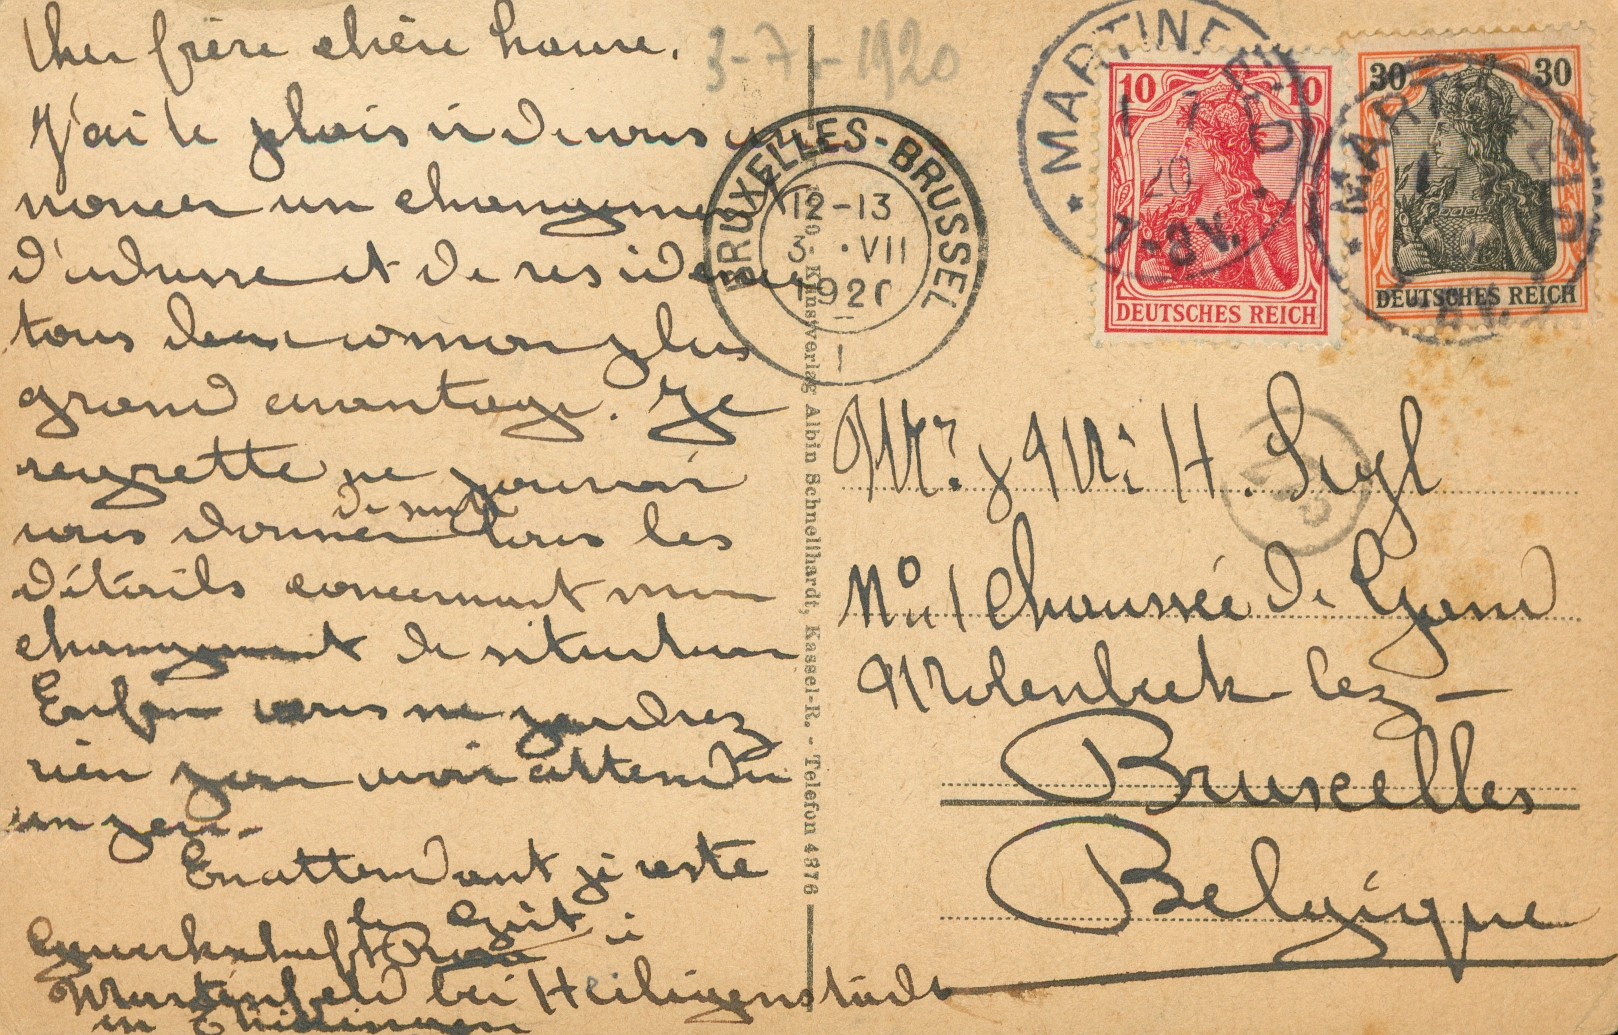 Cher frère chère soeur.
J'ai le plaisir de vous an
noncer un changement
d'adresse et de residence
tous deux à mon plus
grand avantage. Je
regrette ne pouvoir
de suite
vous donner tous les
détails concernant mon
changement de situation
Enfin vous ne perdrez
rien pour avoir attendu
un peu-
En attendant je reste
Gewerkschaft
Martinfeld bei Heiligenstadt
in Thüringen
3-7-1920
BRUXELLES-BRUSSEL
12-13
3 · VII
1920
1
729 - Kunstverlag Albin Schnellhardt, Kassel-R. - Telefon 4876
* MARTINFELD *
1 7
20
10 10
DEUTSCHES REICH
30 30
DEUTSCHES REICH
Mr. & Me H.
No 1 Chaussée de Gand
Molenbeek-lez-
Bruxelles
Belgique